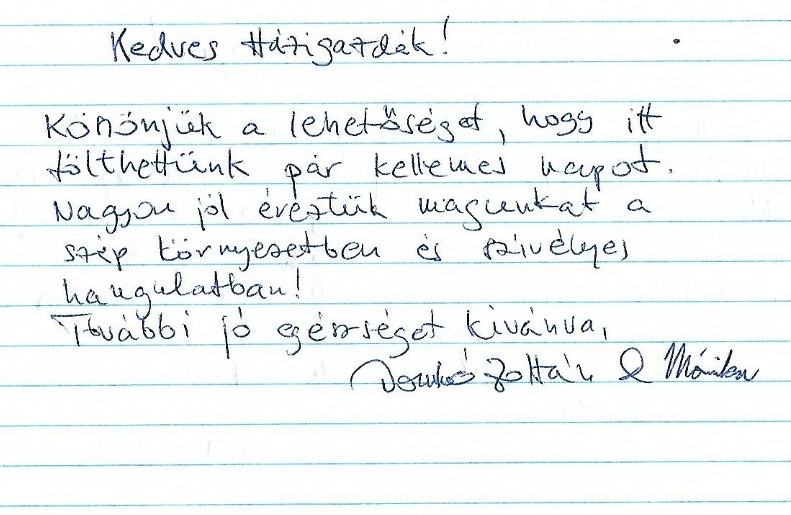 Kedves Házigazdák!
Könönjük a lehetőséget, hogy itt
tölthettünk pár kellemes napot.
Nagyon jól éreztük magunkat a
szép környezetben és szivélyes
hangulatban!
További jó egészséget kivánva,
Zoltán &